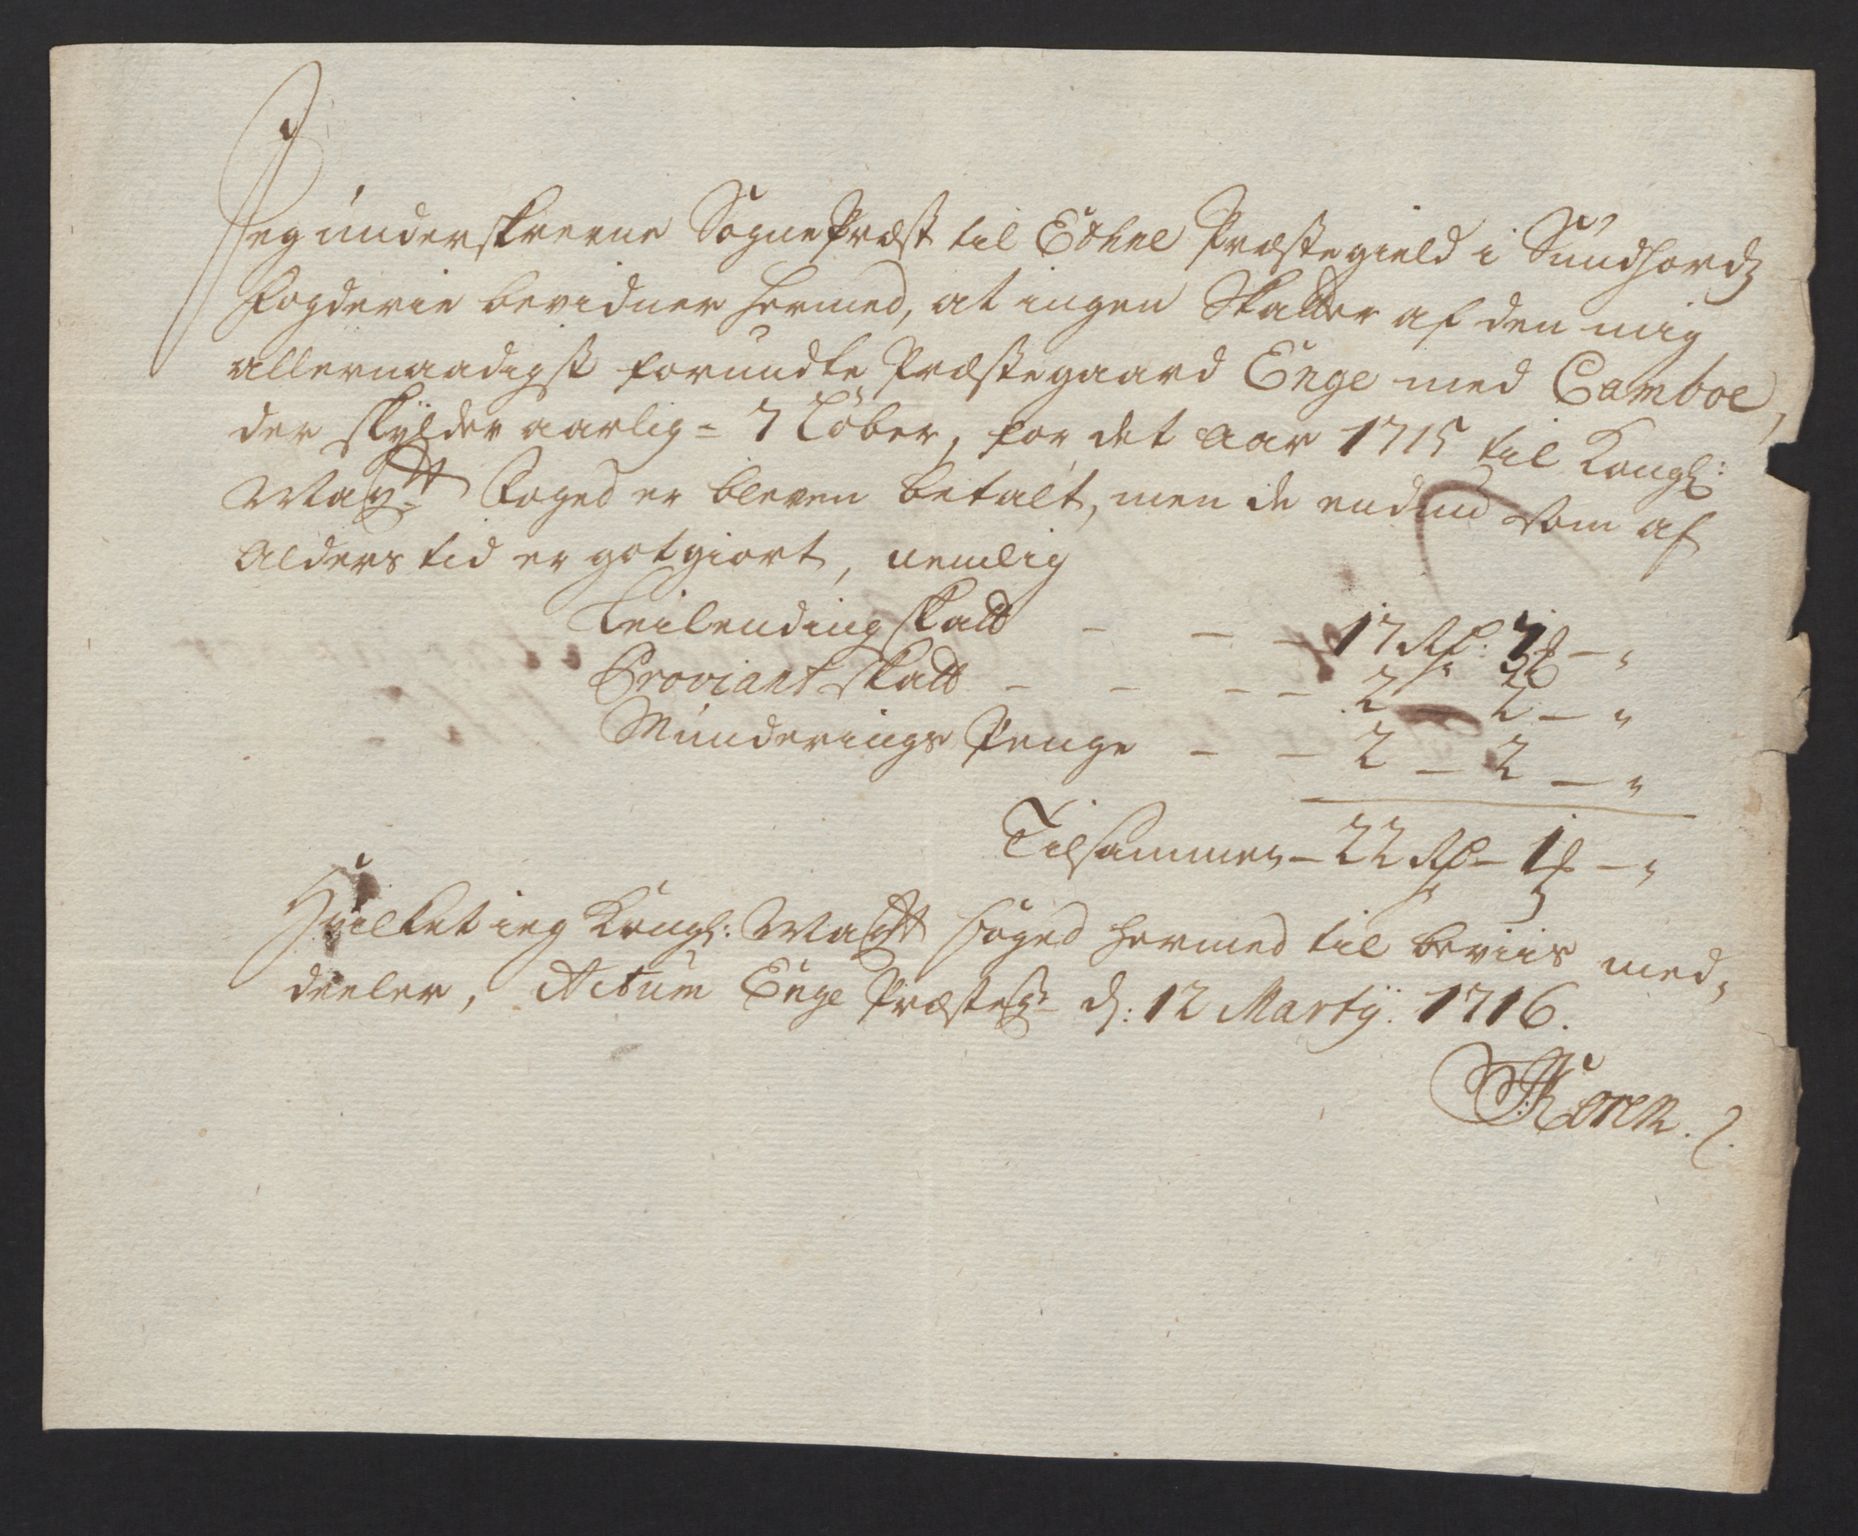 Jeg underskrevne SognePræst til Ethne Præstegield i Sundhordz
Fogderie bevidner hermed, at ingen Skatter af den mig
allernaadigst forundte Præstegaard Enge med Camboe,
der skylder aarlig = 7 Löber, for det Aar 1715 til Kongl:
Maytt Foged er bleven betalt, men de end nu som af
Alders tid er gotgiort, nemlig
Leilending skatt - - - 17 Rd: 3 -"
Proviant skatt - - - - 2 - 2 - "
Munderings Penge - - 2 - 2 - "
Tilsammen - 22 Rd - 1 - "
Hvilket ieg Kongl: Maytt foged hermed til beviis med,
deeler, Actum Enge Præsteg: d: 12 Martij. 1716.
Koren.